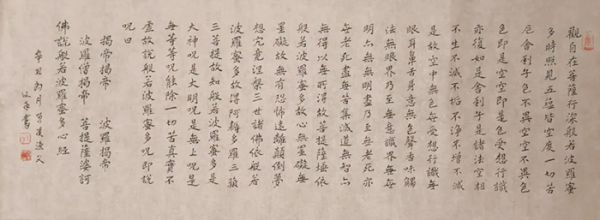 觀自在菩薩行深般若波羅蜜
多時照見五蘊皆空度一切苦
厄舍利子色不異空空不異色
色即是空空即是色受想行識
亦復如是舍利子是諸法空相
不生不滅不垢不淨不增不減
是故空中無色無受想行識無
眼耳鼻舌身意無色聲香味觸
法無眼界乃至無意識界無無
明亦無無明盡乃至無老死亦
無老死盡無苦集滅道無智亦
無得以無所得故菩提薩埵依
般若波羅蜜多故心無罣礙無
罣礙故無有恐怖遠離顛倒夢
想究竟涅槃三世諸佛依般若
波羅蜜多故得阿耨多羅三藐
三菩提故知般若波羅蜜多是
大神呪是大明呪是無上呪是
無等等呪能除一切苦真實不
虛故說般若波羅蜜多呪即說
呪曰
揭帝揭帝 波羅揭帝
波羅僧揭帝 菩提薩婆訶
佛說般若波羅蜜多心經
辛丑 月 漁人
書